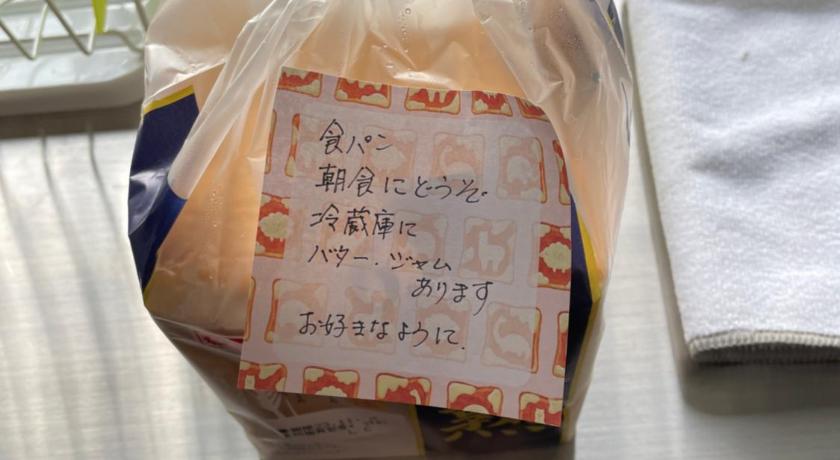 食パン
朝食にどうぞ
冷蔵庫に
バター・ジャム
あります
お好きなように.